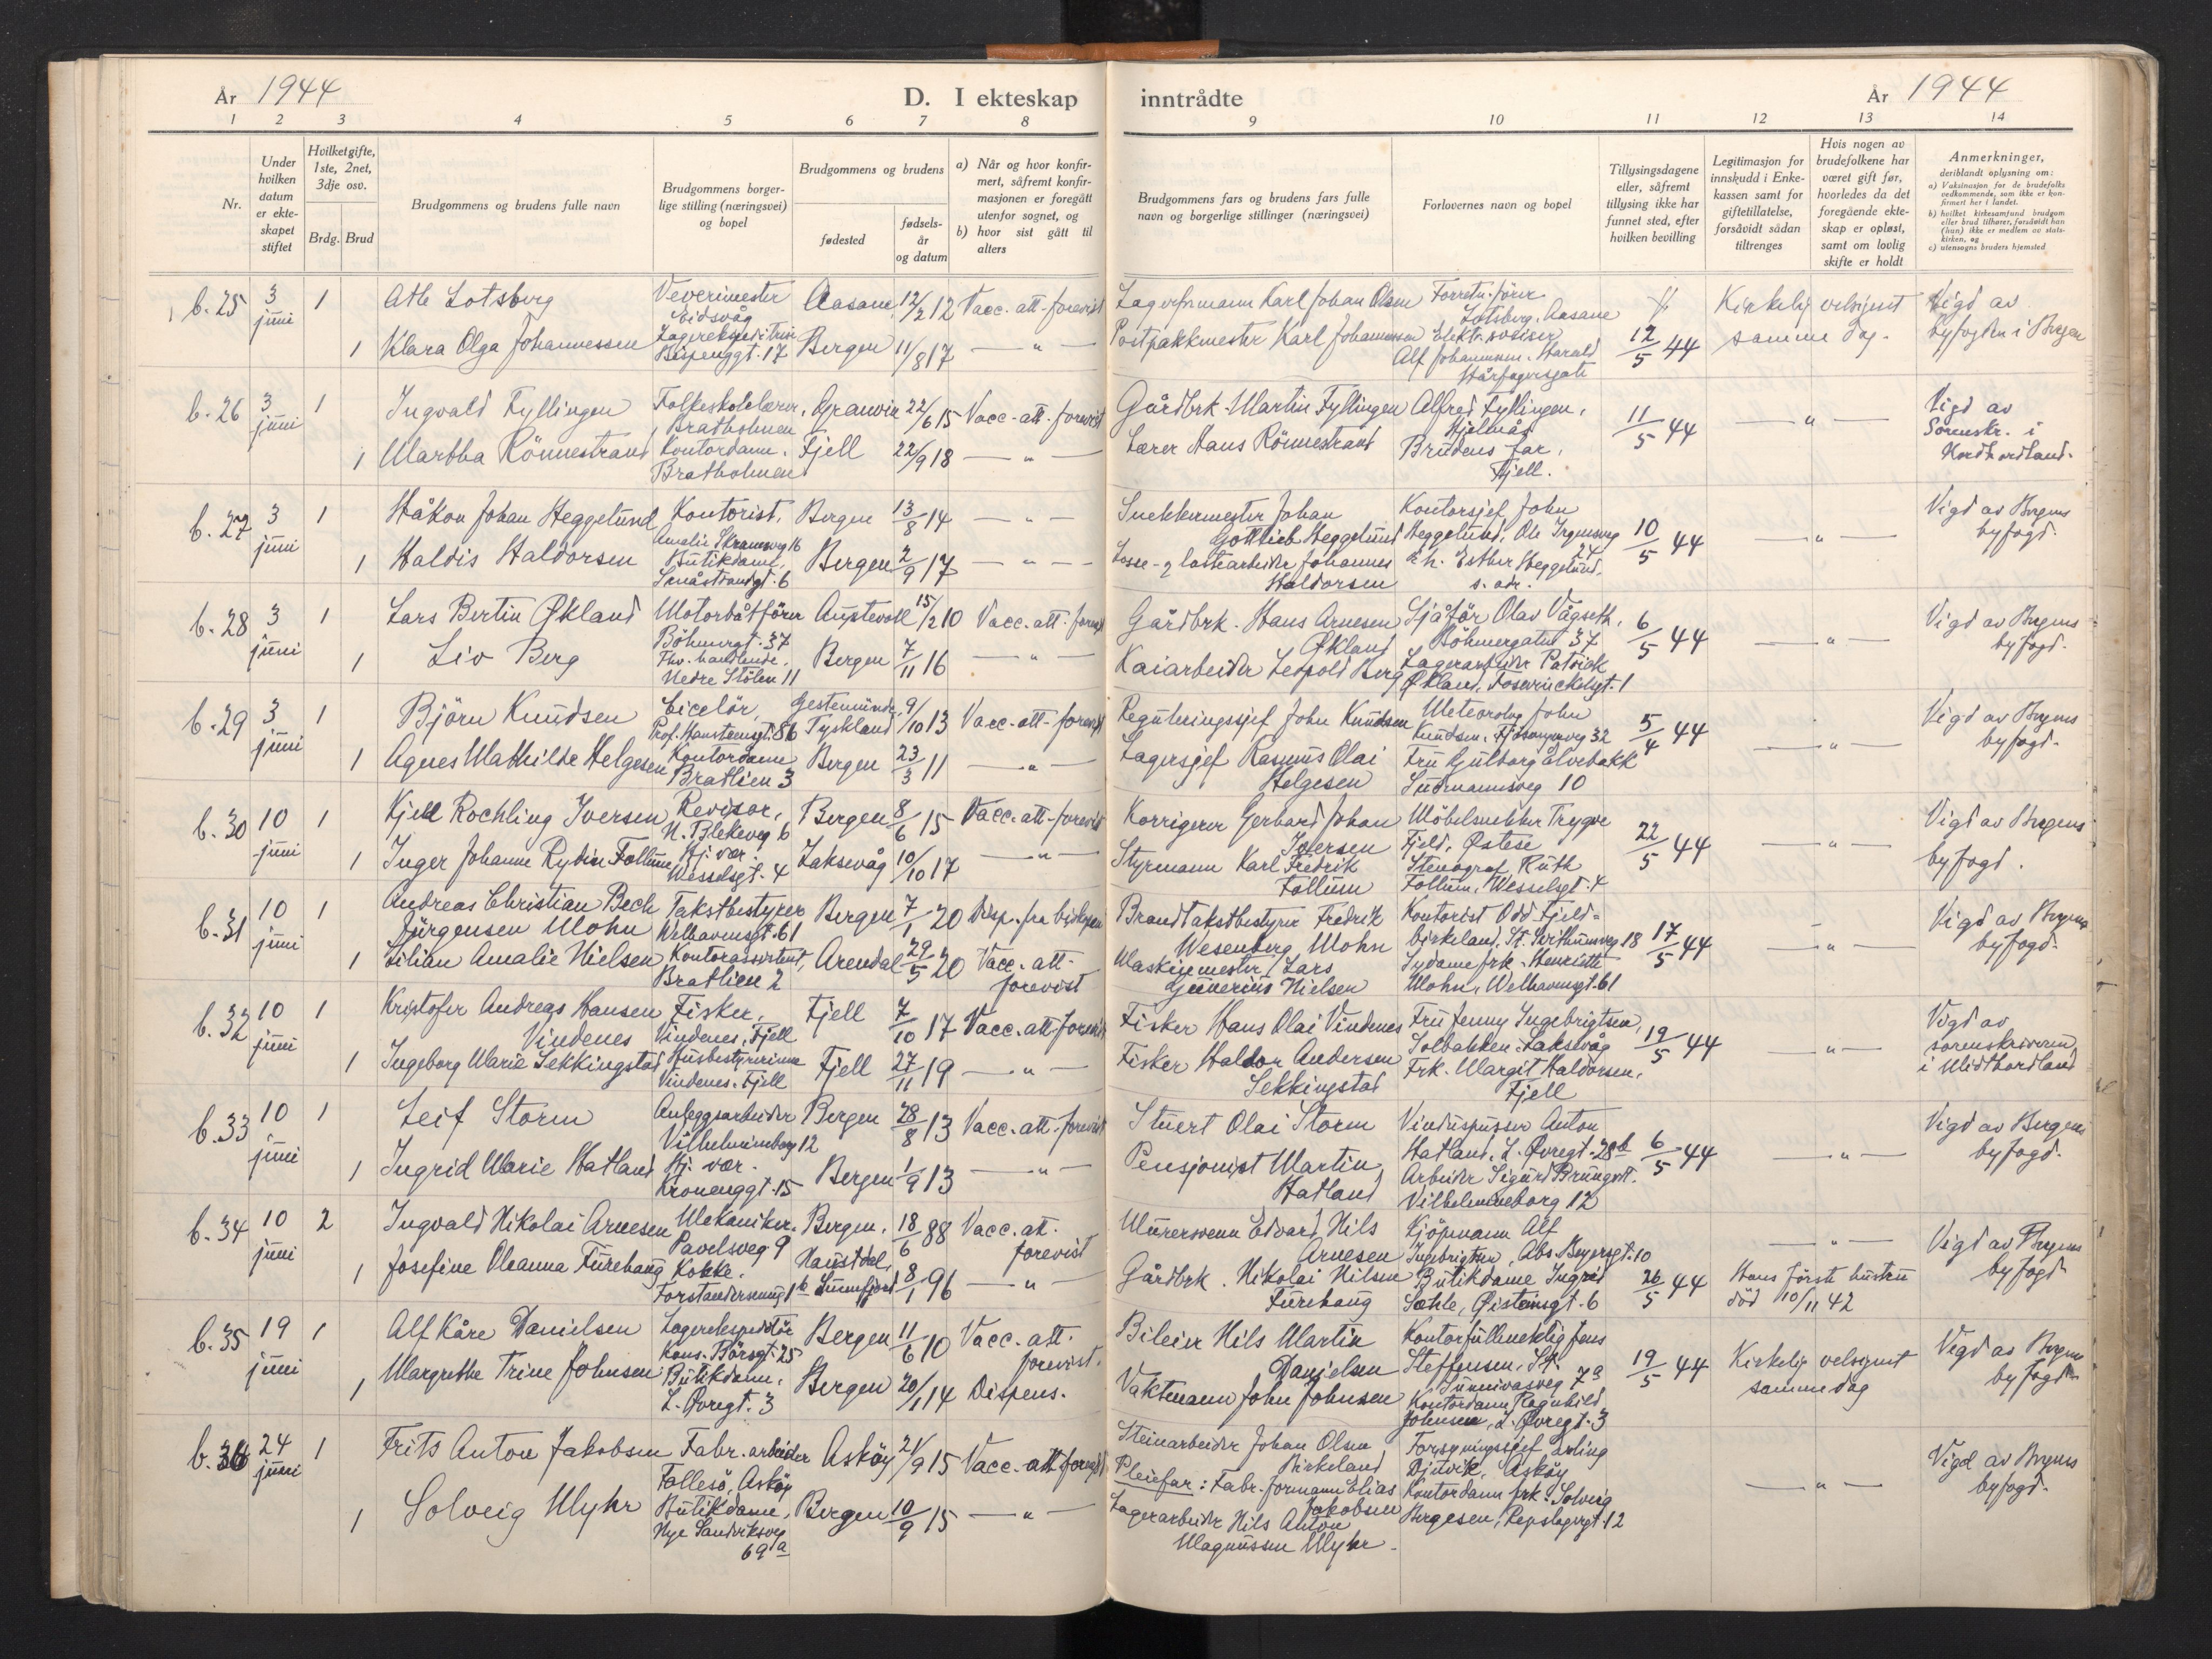 År 1944
D. I ekteskap inntrådte
År 1944
1 2 3 4 5 6 7 8 9 10 11 12 13 14
Nr.
Under hvilken datum er ekteskapet stiftet
Hvilketgifte, 1ste, 2net, 3dje osv.
Brdg. Brud
Brudgommens og brudens fulle navn
Brudgommens borgerlige stilling (næringsvei) og bopel
Brudgommens og brudens
fødested
fødselsår og datum
a) Når og hvor konfirmert, såfremt konfirmasjonen er foregått utenfor sognet, og
b) hvor sist gått til alters
Brudgommens fars og brudens fars fulle navn og borgerlige stillinger (næringsvei)
Forlovernes navn og bopel
Tillysingsdagene eller, såfremt tillysing ikke har funnet sted, efter hvilken bevilling
Legitimasjon for innskudd i Enkekassen samt for giftetillatelse, forsåvidt sådan tiltrenges
Hvis nogen av brudefolkene har været gift før, hvorledes da det foregående ekteskap er opløst, samt om lovlig skifte er holdt
Anmerkninger, deriblandt oplysning om:
a) Vaksinasjon for de brudefolks vedkommende, som ikke er konfirmert her i landet.
b) hvilket kirkesamfund brudgom eller brud tilhører, forsåvidt han (hun) ikke er medlem av statskirken, og
c) utensogns bruders hjemsted
b. 25 3 juni 1 Atle Lotsberg Veverimester Eidsvåg Aasane 12/2 12 Vacc. att. forevist Lagerformann Karl Johan Olsen Forretn.fører Lotsberg, Aasane
12/5 44 Kirkelig velsignet samme dag. Vigd av byfogden i Bergen
1 Klara Olga Johannessen Lagerekspeditrise 17 Bergen 11/8 17 — " — Postpakkmester Karl Johannessen Alf Johannessen, Harald Hårfagersgate
b. 26 3 juni 1 Ingvald Fyllingen Folkeskolelærer, Bratholmen Granvin 22/6 15 Vacc. att. forevist Gårdbrk. Martin Fyllingen Alfred Fyllingen, Hjelmås
11/5 44 — " — Vigd av Sorenskr. i Nordhordland.
1 Martha Rönnestrand Kontordame. Bratholmen Fjell 22/9 18 — " — Lærer Hans Rönnestrand Brudens far, Fjell.
b. 27 3 juni 1 Håkon Johan Heggelund Kontorist, Amalie Skramsveg 16 Bergen 13/8 14 — " — Snekkermester Johan Gottlieb Heggelund Kontorsjef John Heggelund, Ole Irgensveg 24
10/5 44 — " — Vigd av Bergens byfogd.
1 Haldis Haldorsen Butikdame, Småstrandgt. 6 Bergen 2/9 17 — " — Losse- og lastearbeider Johannes Haldorsen Esther Heggelund, s. adr.
b. 28 3 juni 1 Lars Bertin Økland Motorbåtförer Böhmergt. 37 Austevoll 15/2 10 Vacc. att. forevist Gårdbrk. Hans Arnesen Økland Sjåfør Olav Vågseth, Böhmergaten 37
6/5 44 — " — Vigd av Bergens byfogd.
1 Liv Berg Fhv. handlende, Nedre Stölen 11 Bergen 7/11 16 — " — Kaiarbeider Leopold Berg Lagerarbeider Patrick Økland, Foswinckelsgt. 1
b. 29 3 juni 1 Björn Knudsen Siselör, Prof. Hansteensgt. 86 Gestemünde, Tyskland 9/10 13 Vacc. att. forevist Reguleringssjef John Knudsen Meteorolog John Knudsen, Fjösangerveg 32
5/4 44 — " — Vigd av Bergens byfogd.
1 Agnes Mathilde Helgesen Kontordame Bratlien 3 Bergen 23/3 11 — " — Lagersjef Rasmus Olai Helgesen Fru Gulborg Alvebakk Sudmannsveg 10
b. 30 10 juni 1 Kjell Rochling Iversen Revisor, N. Blekeveg 6 Bergen 8/6 15 Vacc. att. forevist Korrigerer Gerhard Johan Iversen Möbelsnekker Trygve Fjeld, Østese
22/5 44 — " — Vigd av Bergens byfogd.
1 Inger Johanne Rydin Follum Hj. vær. Wesselsgt. 4 Laksevåg 10/10 17 — " — Styrmann Karl Fredrik Follum Stenograf Ruth Follum, Wesselsgt. 4
b. 31 10 juni 1 Andreas Christian Bech Jürgensen Mohn Takstbestyrer Welhavensgt. 61 Bergen 7/1 20 Disp. fra biskopen Brandtakstbestyrer Fredrik Wesenberg Mohn Kontorist Odd Fjeldbirkeland, St. Svithunsveg 18
17/5 44 — " — Vigd av Bergens byfogd.
1 Lilian Amalie Nielsen Kontorassistent, Bratlien 2 Arendal 29/5 20 Vacc. att. forevist Maskinmester Lars Gunerius Nielsen Sydame frk. Henriette Mohn, Welhavensgt. 61
b. 32 10 juni 1 Kristofer Andreas Hansen Vindenes Fisker, Vindenes, Fjell Fjell 7/10 17 Vacc. att. forevist Fisker Hans Olai Vindenes Fru Jenny Ingebrigtsen, Solbakken, Laksevåg
19/5 44 — " — Vigd av sorenskriveren i Midthordland
1 Ingeborg Marie Sekkingstad Husbestyrerinne Vindenes, Fjell Fjell 27/11 19 — " — Fisker Haldor Andersen Sekkingstad Frk. Margit Haldorsen, Fjell
b. 33 10 juni 1 Leif Storm Anleggsarbeider Vilhelmineborg 12 Bergen 28/8 13 Vacc. att. forevist Stuert Olai Storm Vinduspusser Anton Hatland, L. Øvregt. 28b
6/5 44 — " — Vigd av Bergens byfogd.
1 Ingrid Marie Hatland Hj. vær. Kroneggt. 15 Bergen 1/9 13 — " — Pensjonist Martin Hatland Arbeider Sigurd Vilhelmineborg 12
b. 34 10 juni 2 Ingvald Nikolai Arnesen Mekaniker. Pavelsveg 9 Bergen. 18/6 88 Vacc. att. forevist Murersvenn Edvard Nils Arnesen Kjöpmann Alf Ingebrigtsen, Abs. Beyersgt. 10
26/5 44 — " — Hans förste hustru död 10/11 42 Vigd av Bergens byfogd
1 Josefine Oleanna Furehaug Kokke. Forstandersmug 1b Naustdal, Sunnfjord 8/1 96 — " — Gårdbrk. Nikolai Nilsen Furehaug Butikdame Ingrid Sæhle, Øisteinsgt. 6
b. 35 19 juni 1 Alf Kåre Danielsen Lagerekspeditör Hans. Börsgt. 25 Bergen 11/6 10 Vacc. att. forevist. Bileier Nils Martin Danielsen Kontorfullmektig Jens Steffensen, St. Sunnivasveg 7a
19/5 44 Kirkelig velsignet samme dag Vigd av Bergens byfogd
1 Margrethe Trine Johnsen Butikdame. L. Øvregt. 3 Bergen 20/1 14 Dispens. Vaktmann John Johnsen Kontordame Ragnhild Johnsen, L. Øvregt. 3
b. 36 24 juni 1 Frits Anton Jakobsen Fabr. arbeider Follesö, Asköy Asköy 21/9 15 Vacc. att. forevist Steinarbeider Johan Olsen Birkeland Pleiefar: Fabr. formann Elias Jakobsen Forsyningssjef Erling Djuvik, Asköy
— " — Vigd av Bergens byfogd.
1 Solveig Myhr Butikdame, Nye Sandviksveg 69a Bergen 10/9 15 — " — Lagerarbeider Nils Anton Magnussen Myhr. Kontordame frk. Solveig Birgesen, Repslagergt. 12